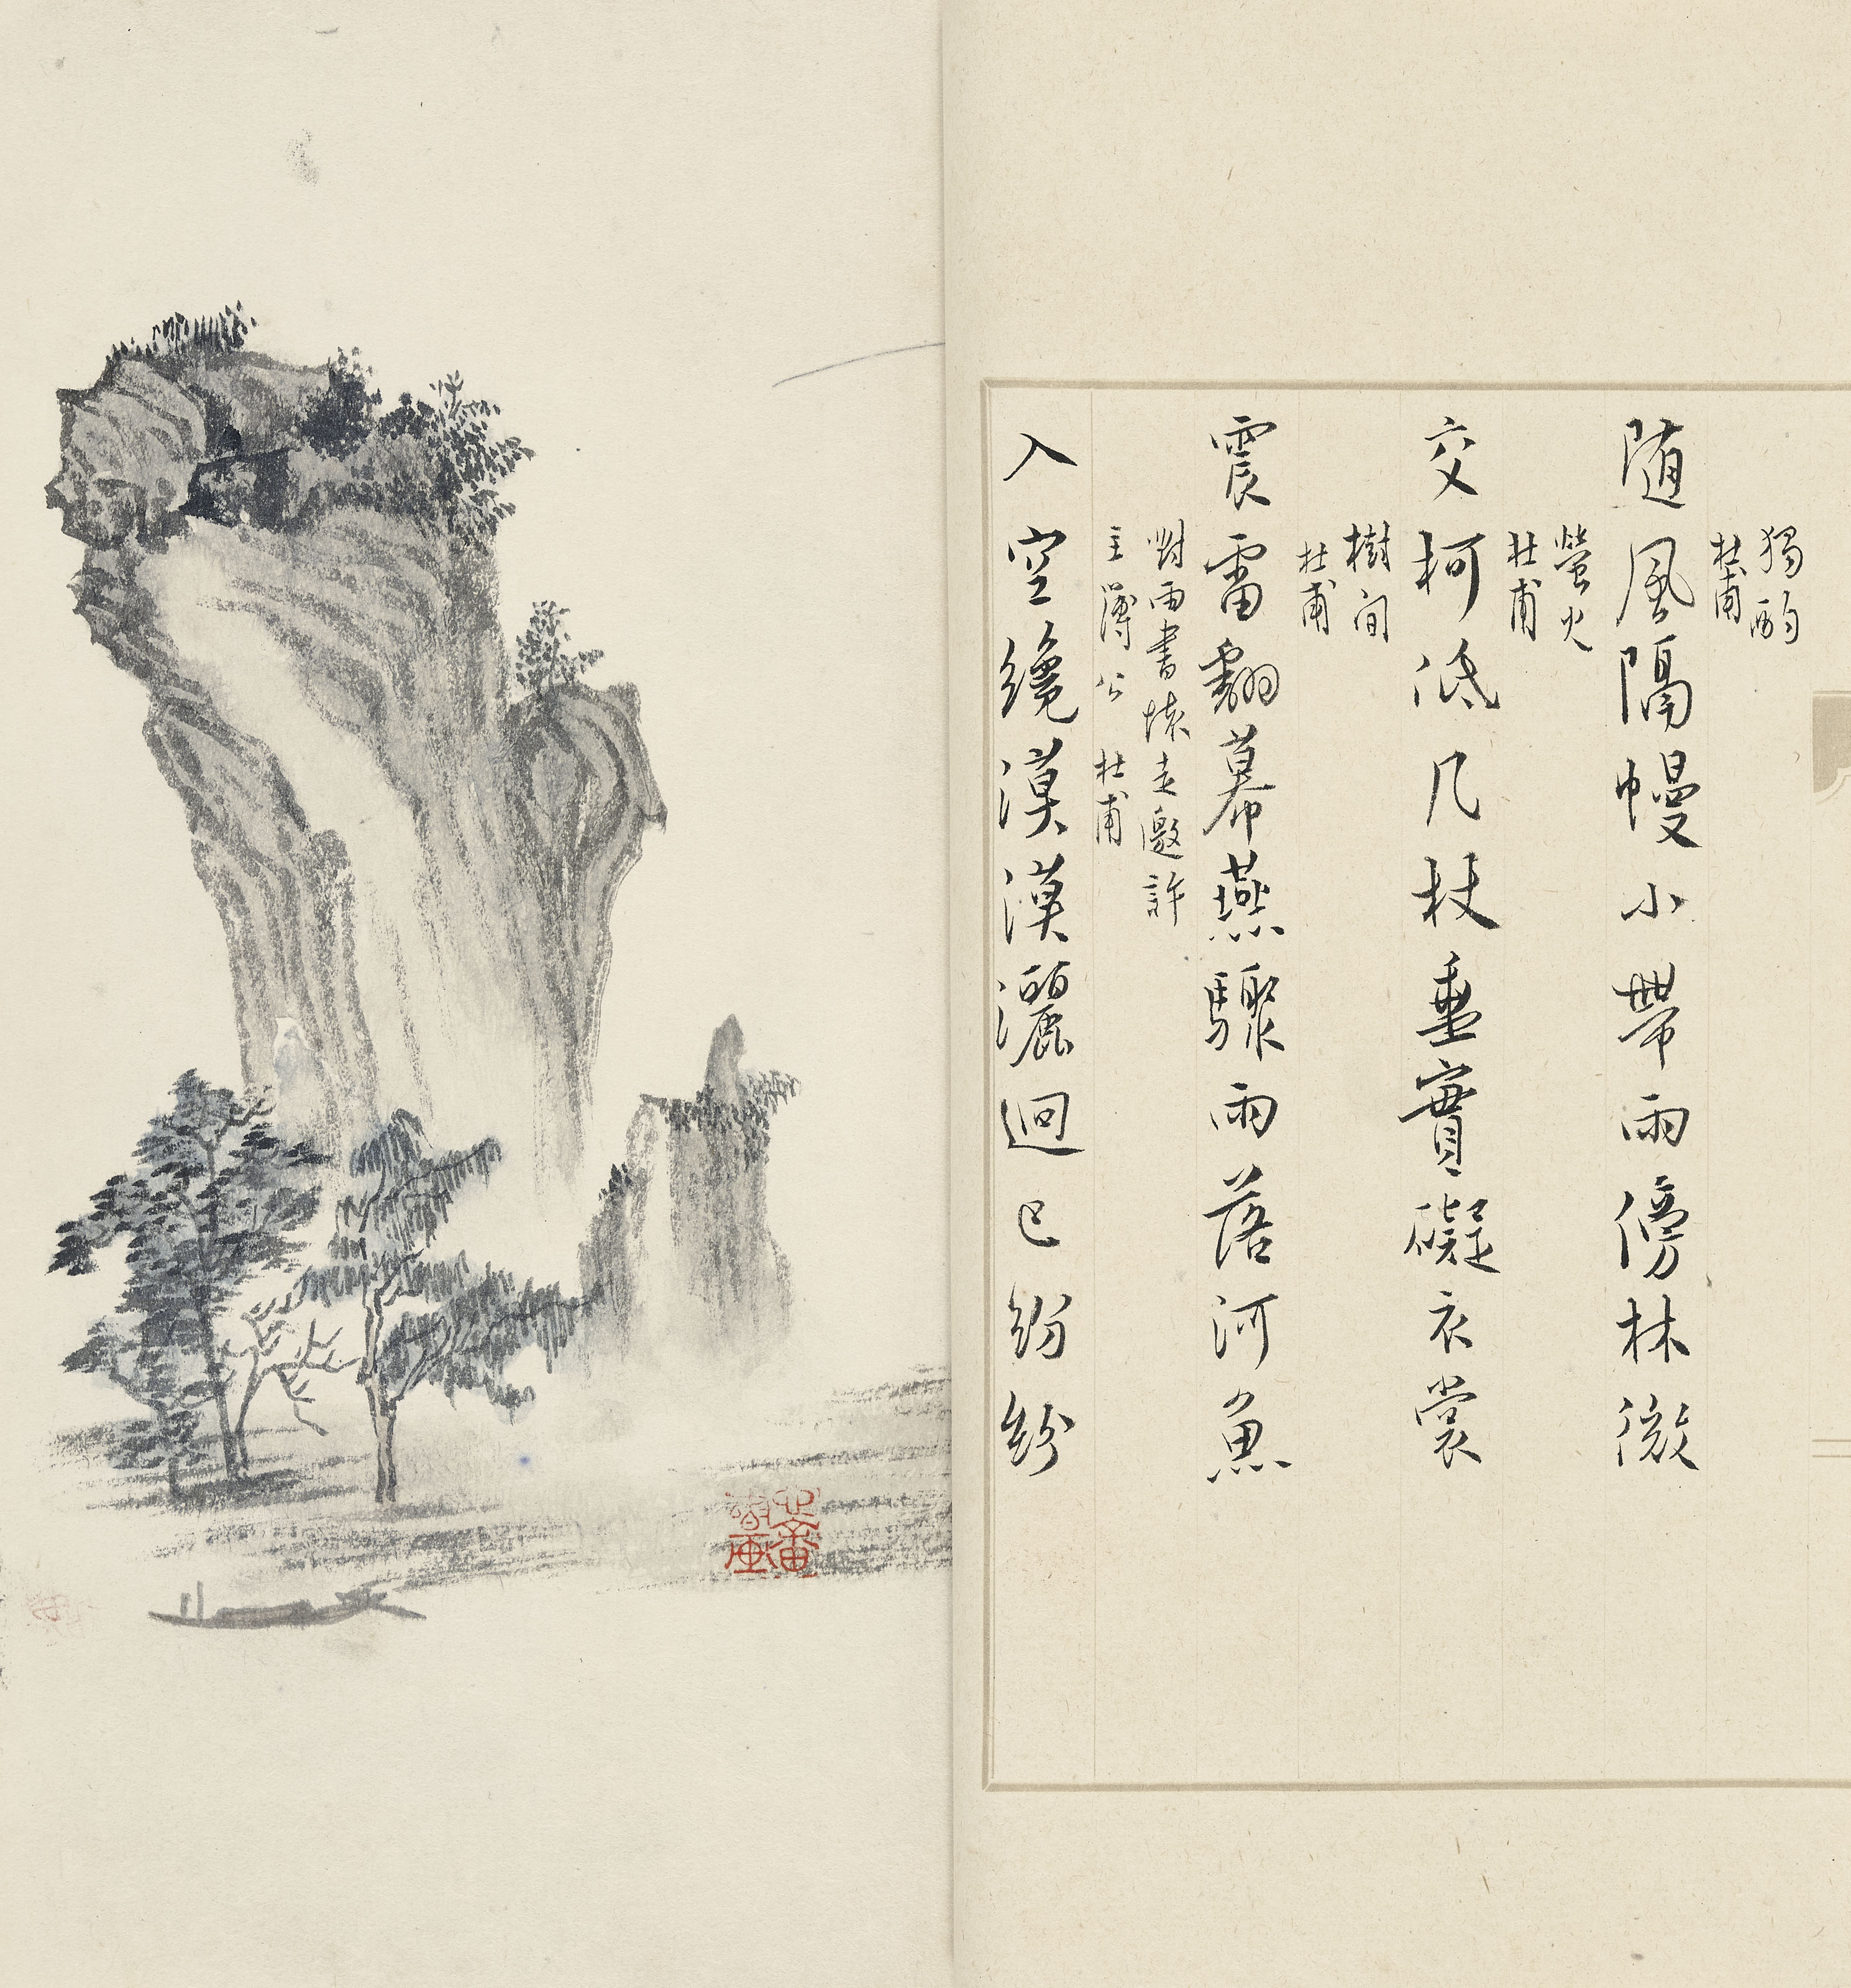 獨酌
杜甫
随風隔幔小帶雨傍林微
螢火
杜甫
交柯低几杖垂實礙衣裳
樹間
杜甫
震雷翻幕燕驟雨落河魚
對雨書懷走邀許
主簿公 杜甫
入空纔漠漠灑迥已紛紛